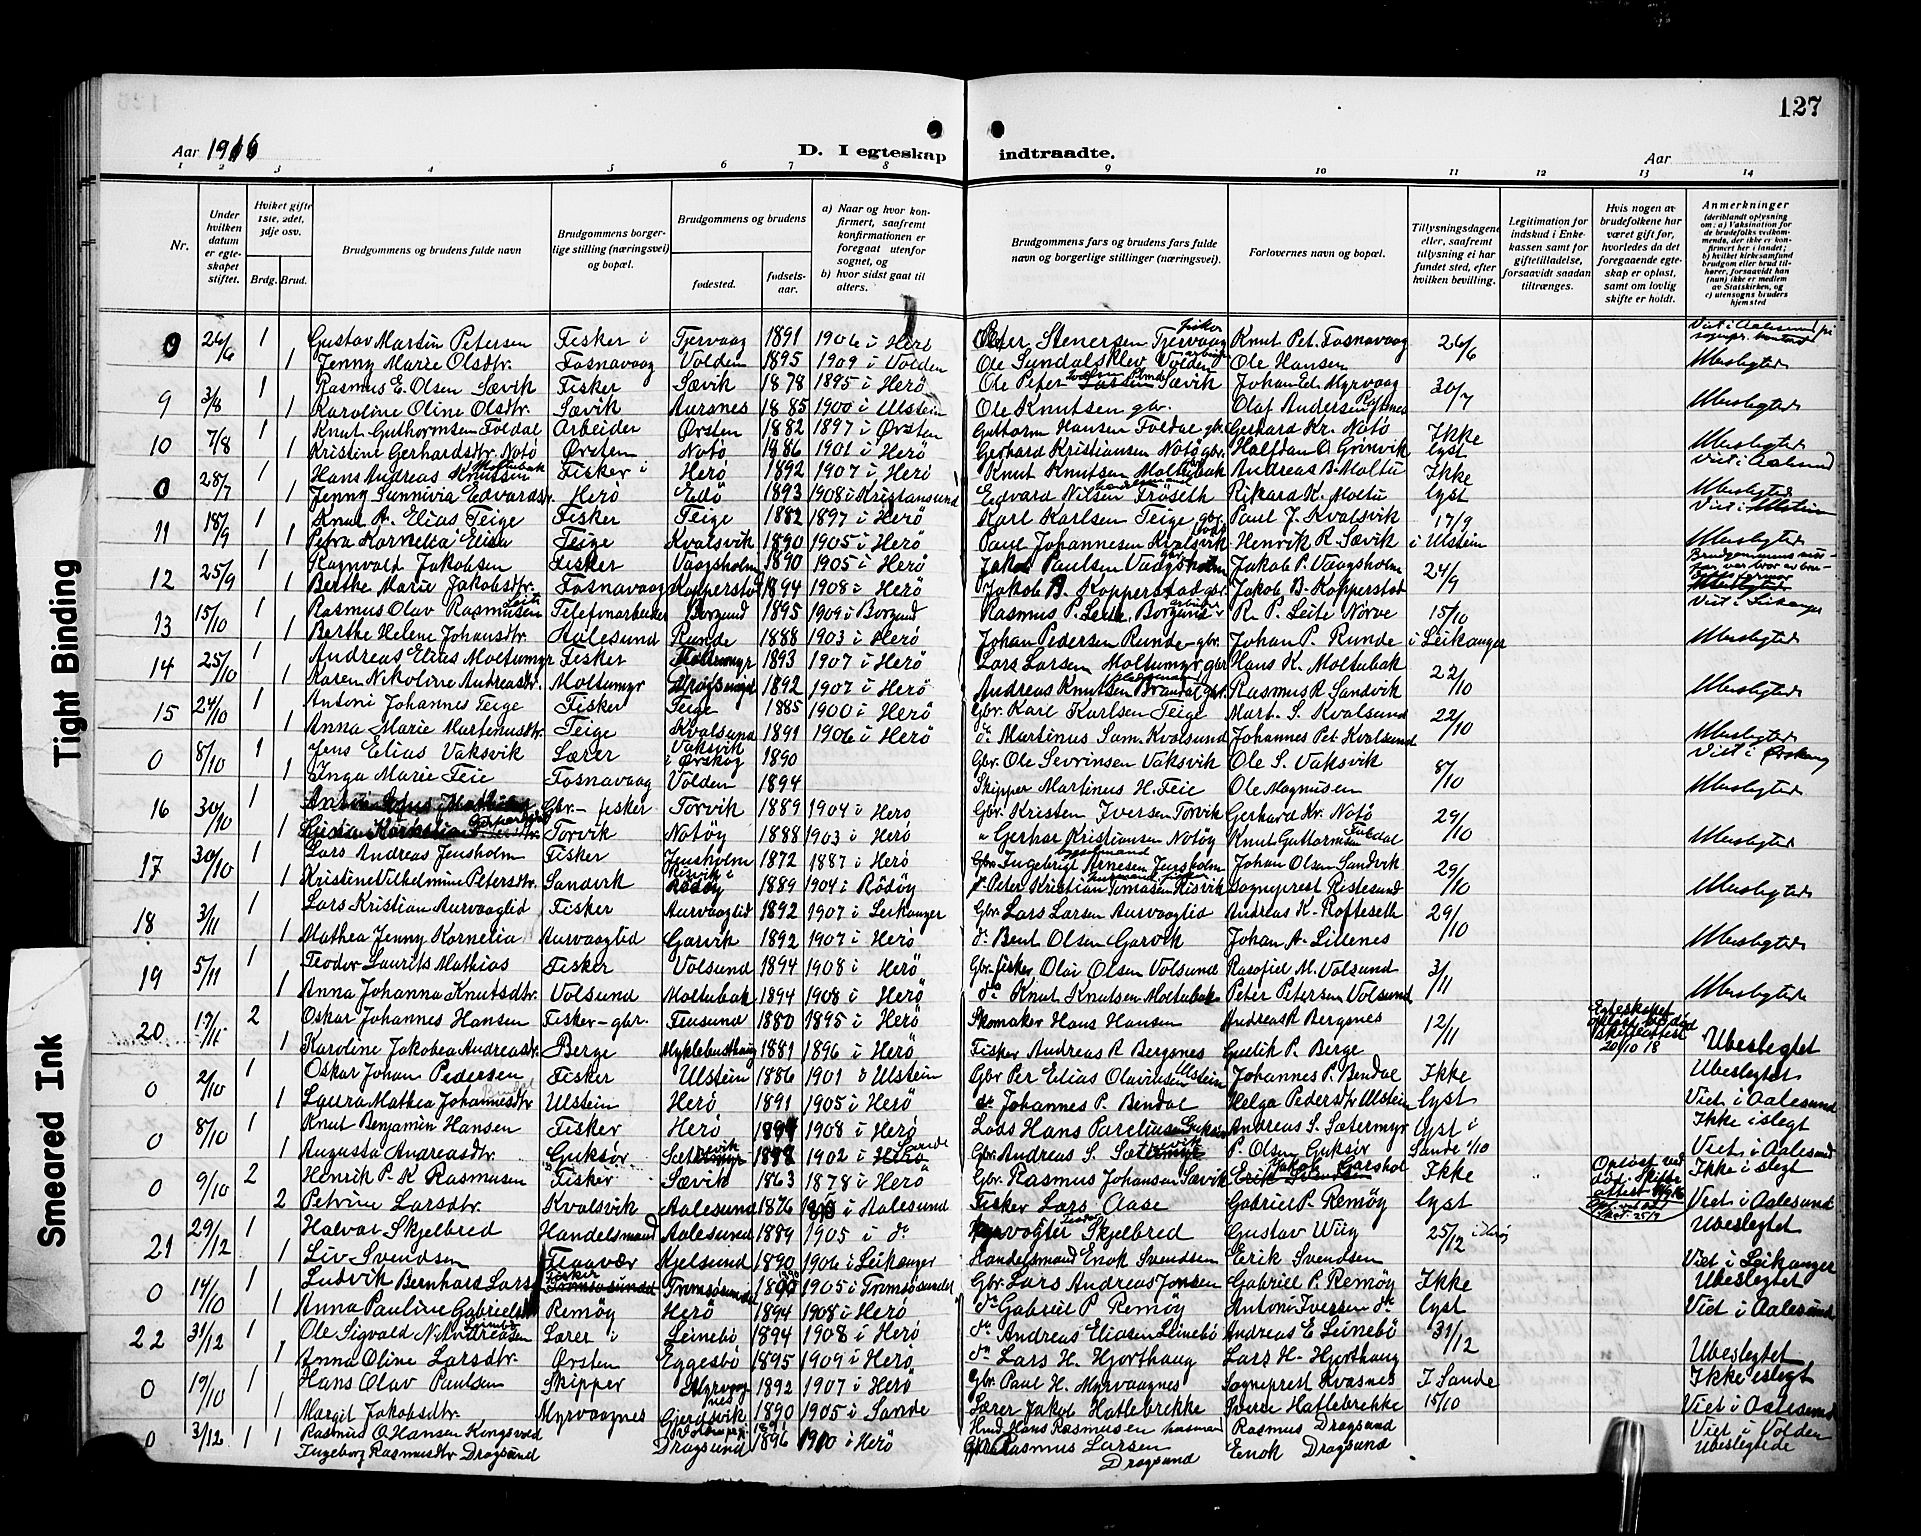 127
Aar 1916
D. I egteskap indtraadte.
Aar
1 2 3 4 5 6 7 8 9 10 11 12 13 14
Nr.
Under hvilken datum er egteskapet stiftet.
Hviket gifte 1ste, 2det, 3dje osv.
Brdg. Brud.
Brudgommens og brudens fulde navn
Brudgommens borgerlige stilling (næringsvei) og bopæl.
Brudgommens og brudens
fødested.
fødselsaar.
a) Naar og hvor konfirmert, saafremt konfirmationen er foregaat utenfor sognet, og
b) hvor sidst gaat til alters.
Brudgommens fars og brudens fars fulde navn og borgerlige stillinger (næringsvei).
Forlovernes navn og bopæl.
Tillysningsdagene eller, saafremt tillysning ei har fundet sted, efter hvilken bevilling.
Legitimation for indskud i Enkekassen samt for giftetilladelse, forsaavidt saadan tiltrænges.
Hvis nogen av brudefolkene har været gift før, hvorledes da det foregaaende egteskap er opløst, samt om lovlig skifte er holdt.
Anmerkninger
0 26/6 1 Gustav Martin Petersen Fisker i Tjervaag 1891 1906 i Herö Peter Stenersen Tjervaag fisker Knut Pet. Fosnavaag 26/6 Viet i Aalesund
1 Jenny Marie Olsdtr. Fosnavaag Volden 1895 1909 i Volden Ole Sundalsklev Volden arbeider Ole Hansen Ubeslegtede
9 3/8 1 Rasmus E. Olsen Sævik Fisker Sævik 1878 1895 i Herö Ole Peter Sævik Johan Ed. Myrvaag 30/7
1 Karoline Oline Olsdtr. Sævik Aursnes 1885 1900 i Ulstein Ole Knutsen gbr. Olaf Andersen Ubeslegtede
10 7/8 1 Knut Guthormsen Foldal Arbeider Ørsten 1882 1897 i Ørsten Guttorm Hansen Foldal gbr. Gerhard Kr. Notö Ikke
1 Kristine Gerhardsdtr. Notö Ørsten Notö 1886 1901 i Herö Gerhard Kristiansen Notö gbr. Halfdan O. Grönvik lyst Ubeslegtede
0 28/7 1 Hans Andreas Knutsen Moltubak Fisker i Herö 1892 1907 i Herö Knut Knutsen Moltubak Andreas B. Moltu Ikke Viet i Aalesund
1 Jenny Sunnivia Edvardsdtr. Herö Edö 1893 1908 i Kristiansund Edvard Nilsen Fröseth Rikard K. Moltu lyst Ubeslegtede
11 18/9 1 Knut A. Elias Teige Fisker Teige 1882 1897 i Herö Karl Karlsen Teige gbr. Paul J. Kvalsvik 17/9 Viet i Ulstein
1 Petra Kornelia Elisa Teige Kvalsvik 1890 1905 i Herö Paul Johannesen Kvalsvik Henrik R. Sævik i Ulstein Ubeslegtede
12 25/9 1 Ragnvald Jakobsen Fisker Vaagsholm 1890 1905 i Herö Jakob Paulsen Vaagsholm Jakob P. Vaagsholm 24/9
1 Berthe Marie Jakobsdtr. Fosnavaag Kopperstad 1894 1908 i Herö Jakob B. Kopperstad gbr. Jakob B. Kopperstad
13 15/10 1 Rasmus Olav Rasmussen Leite Telefonarbeider Borgund 1895 1909 i Borgund Rasmus P. Leite, Borgund arbeider R. P. Leite Nörve 15/10 Viet i Leikanger
1 Berthe Helene Johansdtr. Aalesund Runde 1888 1903 i Herö Johan Pedersen Runde gbr. Johan P. Runde i Leikanger Ubeslegtede
14 25/10 1 Andreas Elias Moltumyr Fisker Moltumyr 1893 1907 i Herö Lars Larsen Moltumyr gbr Hans K. Moltubak 22/10
1 Karen Nikoline Andreasdtr. Moltumyr Dragsund 1892 1907 i Herö Andreas Knutsen Brandal gbr. Rasmus R. Sandvik Ubeslegtede
15 24/10 1 Antoni Johannes Teige Fisker Teige 1885 1900 i Herö Gbr. Karl Karlsen Teige Mart. S. Kvalsund 22/10
1 Anna Marie Martinusdtr. Teige Kvalsund 1891 1906 i Herö do Martinus Sam. Kvalsund Johannes Pet Kvalsund Ubeslegtede
0 8/10 1 Jens Elias Vaksvik Lærer Vaksvik i Ørskog 1890 Gbr. Ole Sevrinsen Vaksvik Ole S. Vaksvik 8/10 Viet i Ørskog
1 Inga Marie Feie Fosnavaag Volden 1894 Skipper Martinus H. Feie Ole Magnussen Ubeslegtede
16 30/10 1 Gbr.- fisker Torvik 1889 1904 i Herö Gbr. Kristen Iversen Torvik Gerhard Kr. Notö 29/10
1 Torvik Notöy 1888 1903 i Herö " Gerhar Kristiansen Notöy Knut Guttormsen Foldal Ubeslegtede
17 30/10 1 Lars Andreas Jensholm Fisker Jensholm 1872 1887 i Herö Gbr. Ingebrigt Arnesen Jensholm Johan Olsen Sandvik 29/10
1 Kristine Vilhelmine Petersdtr. Sandvik Risvik i Rödöy 1889 1904 i Rödöy Peter Kristian Tomasen Risvik Sogneprest Restesund Ubeslegtede
18 3/11 1 Lars Kristian Aurvaaglid Fisker Aurvaaglid 1892 1907 i Leikanger Gbr. Lars Larsen Aurvaaglid Andreas K. Rofteseth 29/10
1 Mathea Jenny Kornelia Aurvaaglid Garvik 1892 1907 i Herö do Bent Olsen Garvik Johan A. Lillenes Ubeslegtede
19 5/11 1 Teodor Laurits Mathias Fisker Volsund 1894 1908 i Herö Gbr. fisker Olai Olsen Volsund Rasofiel M. Volsund 3/11
1 Anna Johanna Knutsdtr. Volsund Moltubak 1894 1908 i Herö do Knut Knutsen Moltubak Peter Petersen Volsund Ubeslegtede
20 17/11 2 Oskar Johannes Hansen Fisker-gbr. Tensund 1880 1895 i Herö Skomaker Hans Hansen Andreas R Bergsnes 12/11
1 Karoline Jakobea Andreasdtr. Berge Myklebusthaug 1881 1896 i Herö Fisker Andreas R Bergsnes Gullik P. Berge 20/10 18 Ubeslegtet
0 2/10 1 Oskar Johan Pedersen Fisker Ulstein 1886 1901 i Ulstein Gbr Per Elias Olavinusen Ulstein Johannes P. Bendal Ikke Ubeslegtet
1 Laura Mathea Johannesdtr Ulstein Herö 1891 1905 i Herö do Johannes P. Bendal Helga Pedersdtr Ulstein lyst Viet i Aalesund
0 8/10 1 Knut Benjamin Hansen Fisker Herö 1894 1908 i Herö Lods Hans Pareliusen Guksör Andreas S. Sætermyr lyst i Ikke i slegt
1 Augusta Andreasdtr. Guksör 1888 1902 i Sande Gbr. Andreas S. P. Olsen Guksör Sande 1/10 Viet i Aalesund
0 9/10 2 Henrik P. K Rasmussen Fisker Sævik 1863 1878 i Herö Gbr. Rasmus Johansen Sævik Jakob Garshol Ikke Opløst ved død. Skifteattest Ikke i slegt
2 Petrine Larsdtr. Kvalsvik Aalesund 1876 i Aalesund Fisker Lars Aase Gabriel P. Remöy lyst Viet i Aalesund
21 29/12 1 Halvar Skjelbred Handelsmand Aalesund 1889 1905 i do Skjelbred Gustav Wiig 25/12 i Herö Ubeslegtet
1 Liv Svendsen Flaavær Kjelsund 1890 1906 i Leikanger Handelsmand Enok Svendsen Erik Svendsen Viet i Leikanger
0 14/10 1 Ludvik Bernhard Lars Fisker Tromsösundet Tromsösundet 1890 1905 i Tromsösundet Gbr. Lars Andreas Jonsen Gabriel P. Remöy Ikke Ubeslegtet
1 Anna Pauline Gabrielsdtr Remöy Herö 1894 1908 i Herö do Gabriel P Remöy Antoni Iversen do lyst Viet i Aalesund
22 31/12 1 Ole Sigvald N. Andreasen Leinebö Lærer i Leinebö 1894 1908 i Herö do Andreas Eliasen Leinebö Andreas E Leinebö 31/12
1 Anna Oline Larsdtr. Ørsten Eggesbö 1895 1909 i Herö do Lars H. Hjorthaug Lars H. Hjorthaug Ubeslegtet
0 19/10 1 Hans Olav Paulsen Skipper Myrvaagnes 1892 1907 i Herö Gbr. Paul H. Myrvaagnes Sogneprest Kvasnes I Sande Ikke i slegt
1 Margit Jakobsdtr. Myrvaagnes Gjerdsvik 1890 1905 i Sande Lærer Jakob Hatlebrekke Sverre Hatlebrekke 15/10 Viet i Aalesund
0 3/12 1 1 Rasmus O Hansen Kingsvold Hans Rasmussen husmand Rasmus Dragsund Viet i Volden
Ingeborg Rasmusdtr Dragsund Dragsund 1896 1910 i Herö Gbr Rasmus Larsen Dragsund Enok Dragsund Ubeslegtede
Tight Binding
Smeared Ink